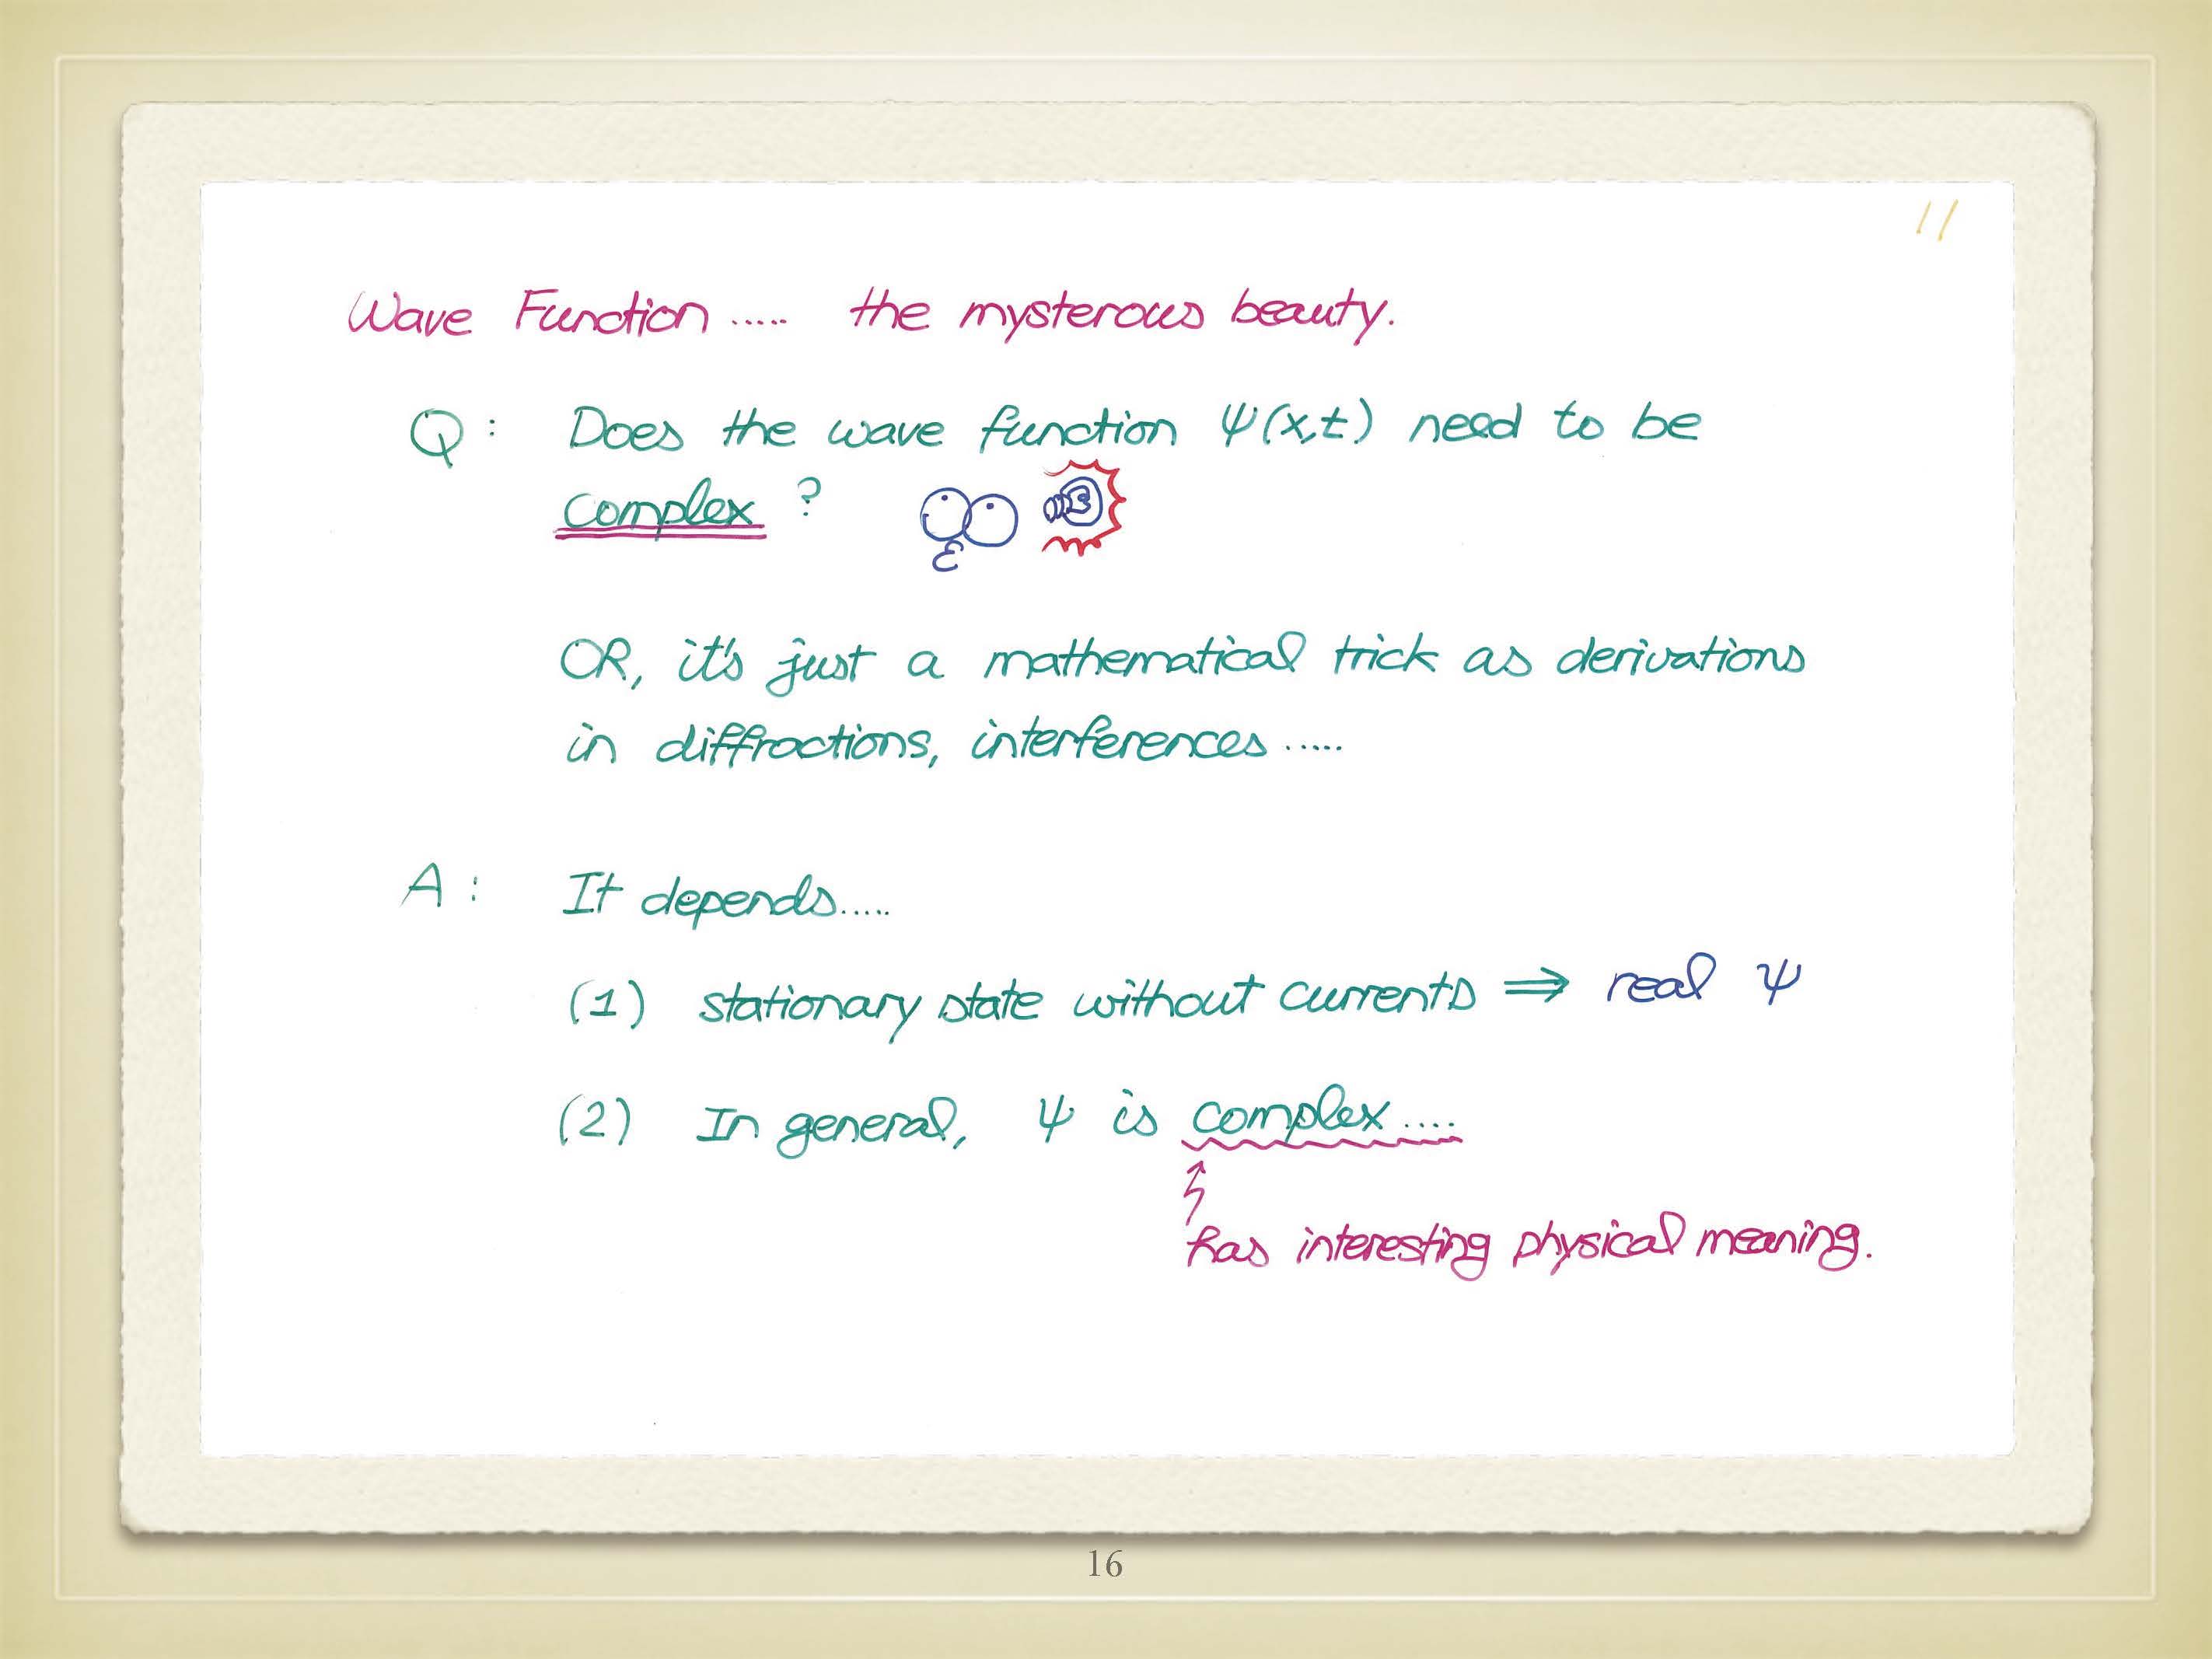 11
Wave Function ..... the mysterous beauty.
Q : Does the wave function ψ(x,t) need to be
complex ?
OR, it's just a mathematical trick as derivations
in diffractions, interferences .....
A : It depends.....
(1) stationary state without currents ⇒ real ψ
(2) In general, ψ is complex ....
has interesting physical meaning.
16